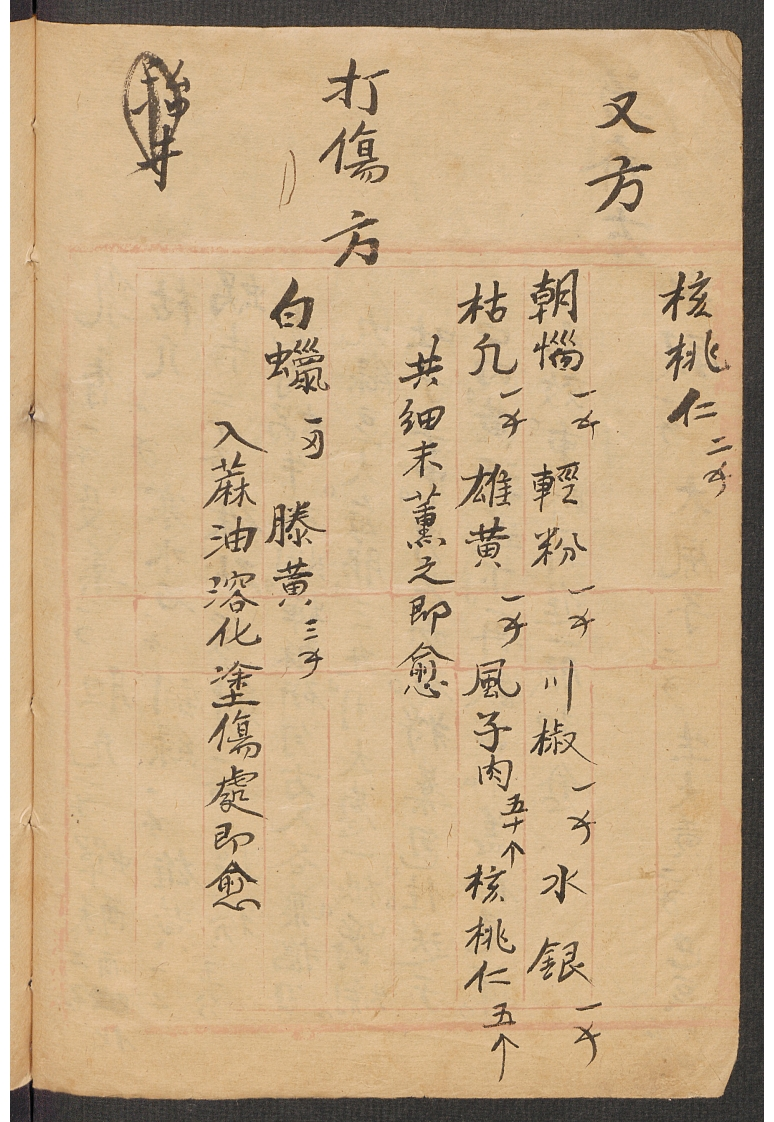 核桃仁二錢
又方
朝惱一錢 輕粉一錢 川椒一錢 水銀一錢
枯凢一錢 雄黄一錢 風子肉五十个 核桃仁五个
共细末薰之即愈
打傷方
白蠟一两 滕黄三錢
入蔴油溶化塗傷處即愈